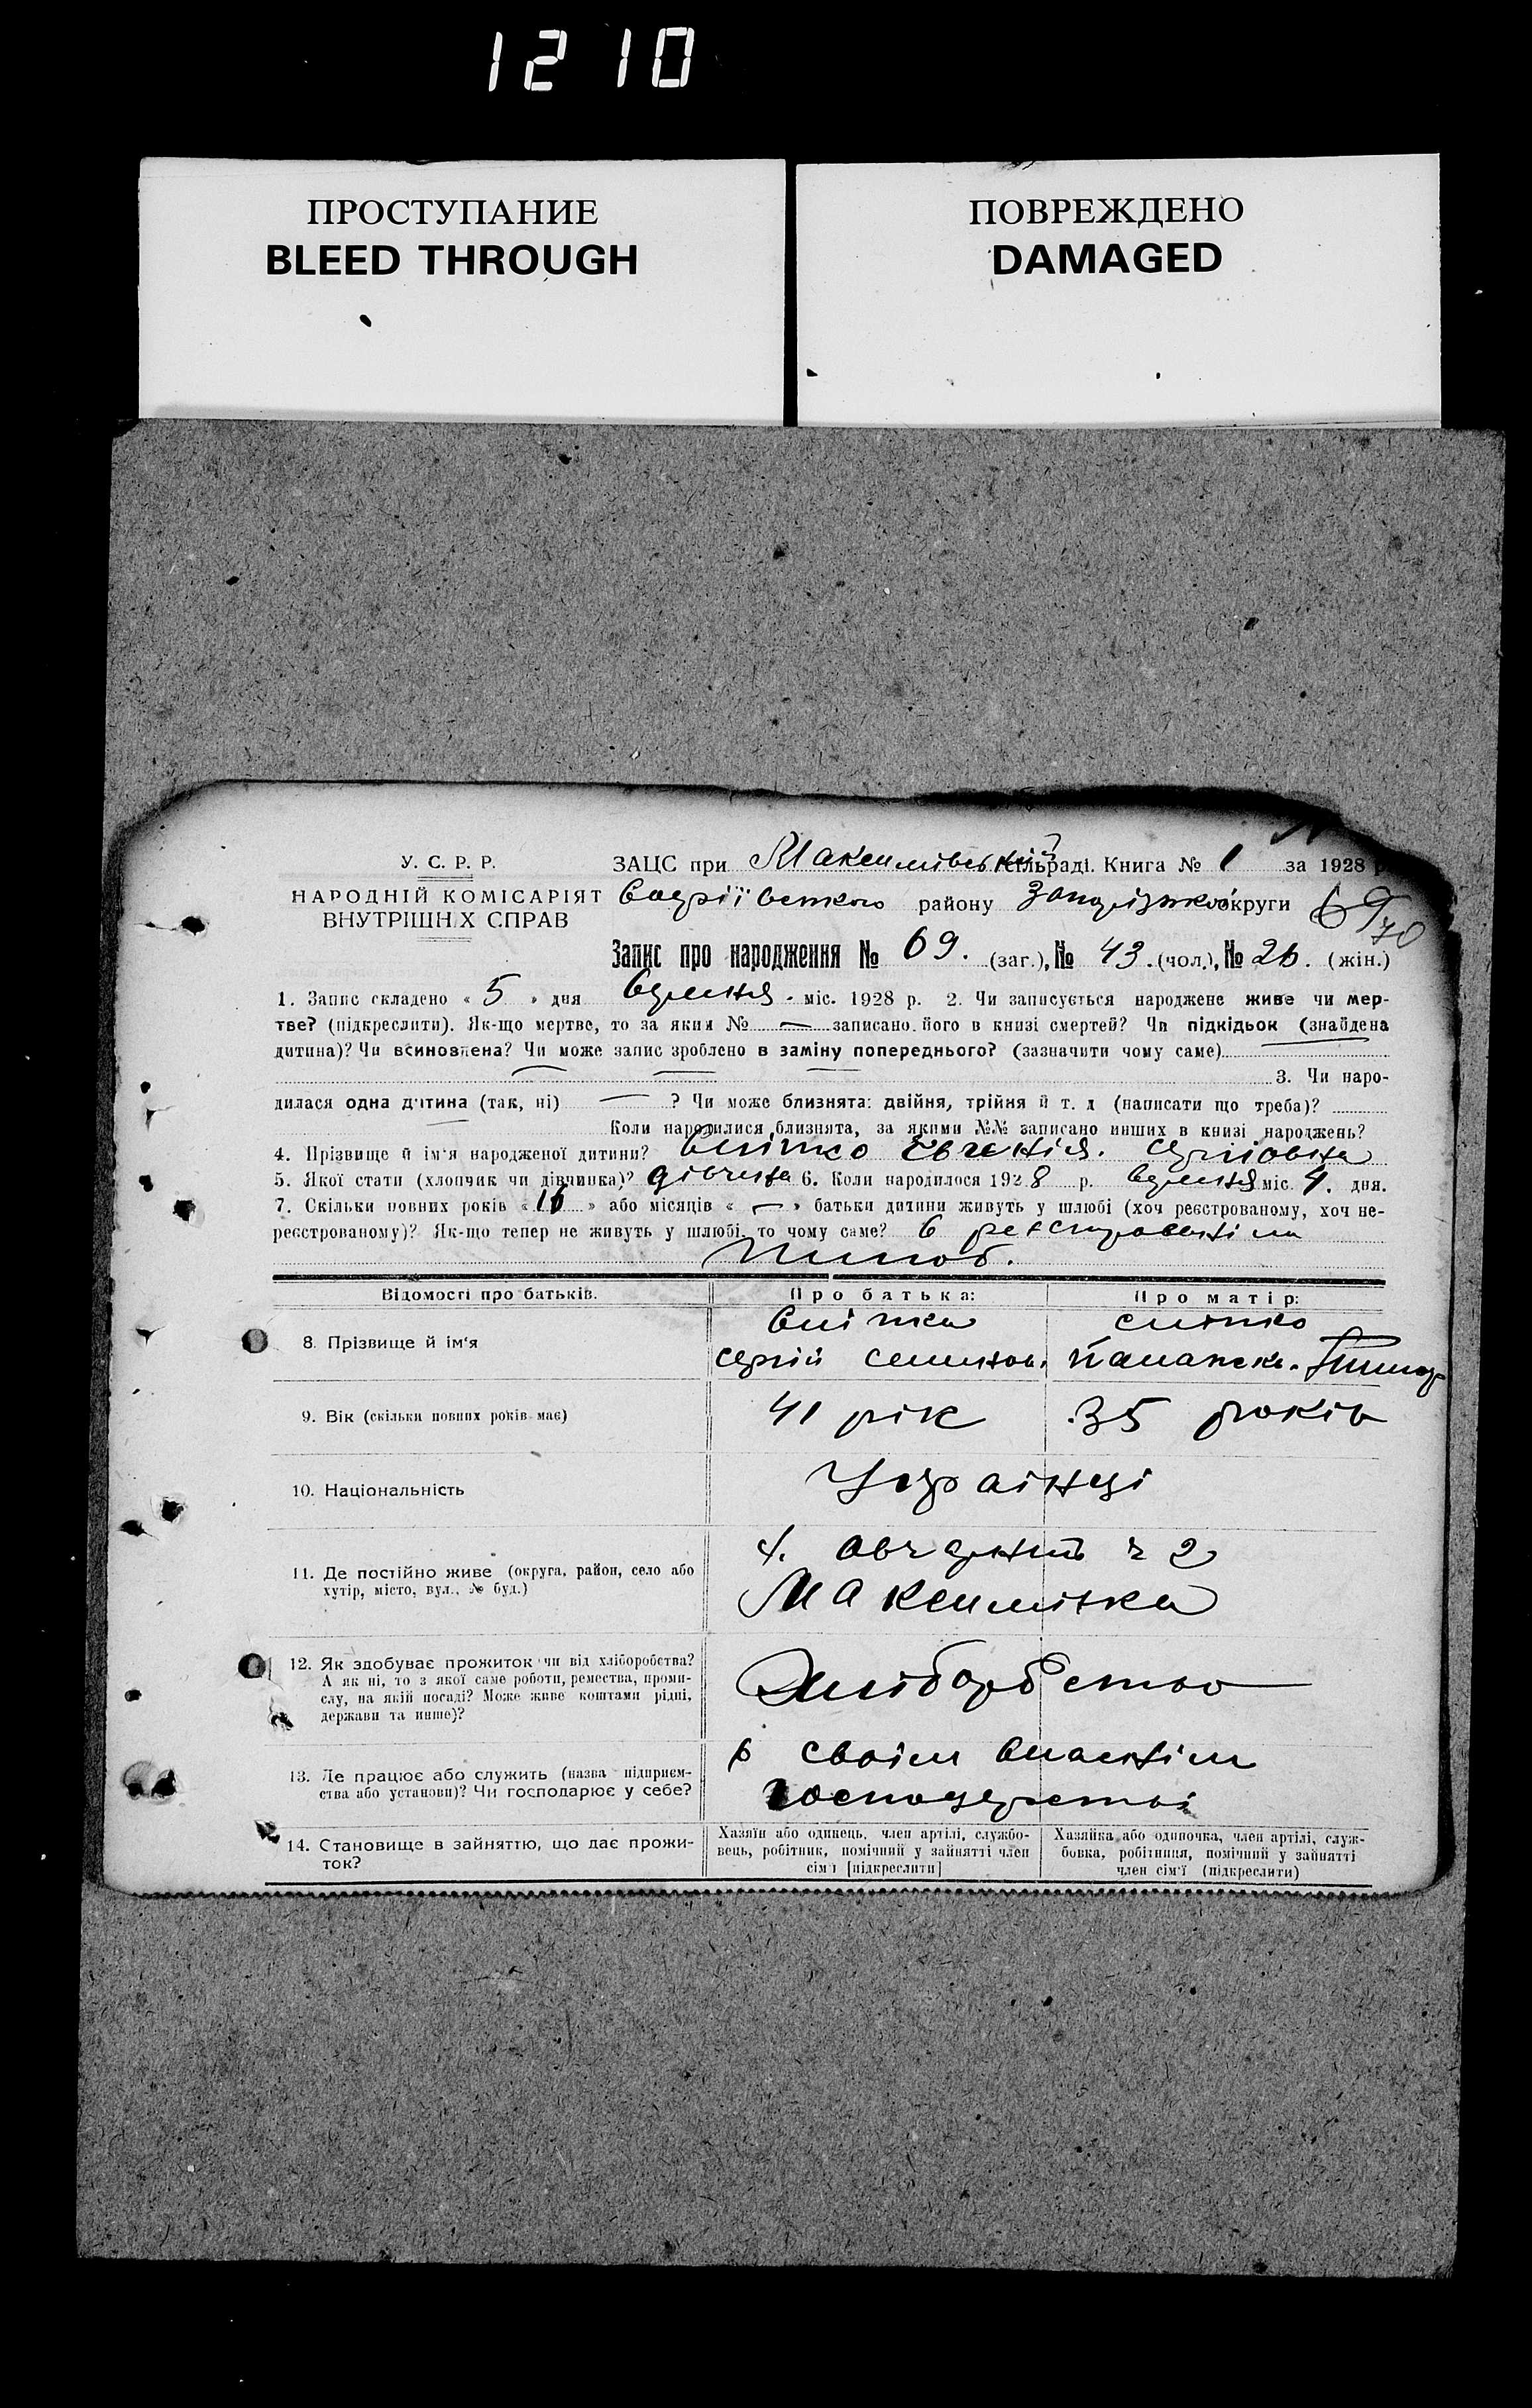 1210
ПРОСТУПАНИЕ
BLEED THROUGH
ПОВРЕЖДЕНО
DAMAGED
У. С. Р. Р.
НАРОДНІЙ КОМІСАРІЯТ
ВНУТРІШНІХ СПРАВ
ЗАЦС при Максимівській сільраді. Книга № 1 за 1928 р
району округи 69 70
Запис про народження № 69. (заг.), № 43. (чол.), № 26. (жін.)
1. Запис складено « 5 » дня міс. 1928 р. 2. Чи записується народжене живе чи мер-
тве? (підкреслити). Як-що мертве, то за яким № — записано його в книзі смертей? Чи підкідьок (знайдена
дитина)? Чи всиновлена? Чи може запис зроблено в заміну попереднього? (зазначити чому саме)
3. Чи наро-
дилася одна дитина (так, ні) — ? Чи може близнята: двійня, трійня й т. д (написати що треба)?
Коли народилися близнята, за якими №№ записано инших в книзі народжень?
4. Прізвище й ім'я народженої дитини? Євгенія.
5. Якої стати (хлопчик чи дівчинка)? дівчина 6. Коли народилося 1928 р. міс. 4. дня.
7. Скільки повних років « 16 » або місяців « — » батьки дитини живуть у шлюбі (хоч реєстрованому, хоч не-
реєстрованому)? Як-що тепер не живуть у шлюбі, то чому саме? в реєстрованім
шлюб.
Відомості про батьків.
Про батька:
Про матір:
8. Прізвище й ім'я
Сліпко
Сергій Семенов.
Сліпко
9. Вік (скільки повних років має)
41 рік
35 років
10. Національність
Українці
11. Де постійно живе (округа, район, село або
хутір, місто, вул., № буд.)
ч 2
Максимівка
12. Як здобуває прожиток чи від хліборобства?
А як ні, то з якої саме роботи, ремества, проми-
слу, на якій посаді? Може живе коштами рідні,
держави та инше)?
Хлібороbство
13. Де працює або служить (назва підприєм-
ства або установи)? Чи господарює у себе?
в своїм власнім
господарстві
14. Становище в зайняттю, що дає прожи-
ток?
Хазяїн або одинець, член артілі, службо-
вець, робітник, помічний у зайнятті член
сім'ї [підкреслити]
Хазяйка або одиночка, член артілі, служ-
бовка, робітниця, помічний у зайнятті
член сім'ї (підкреслити)